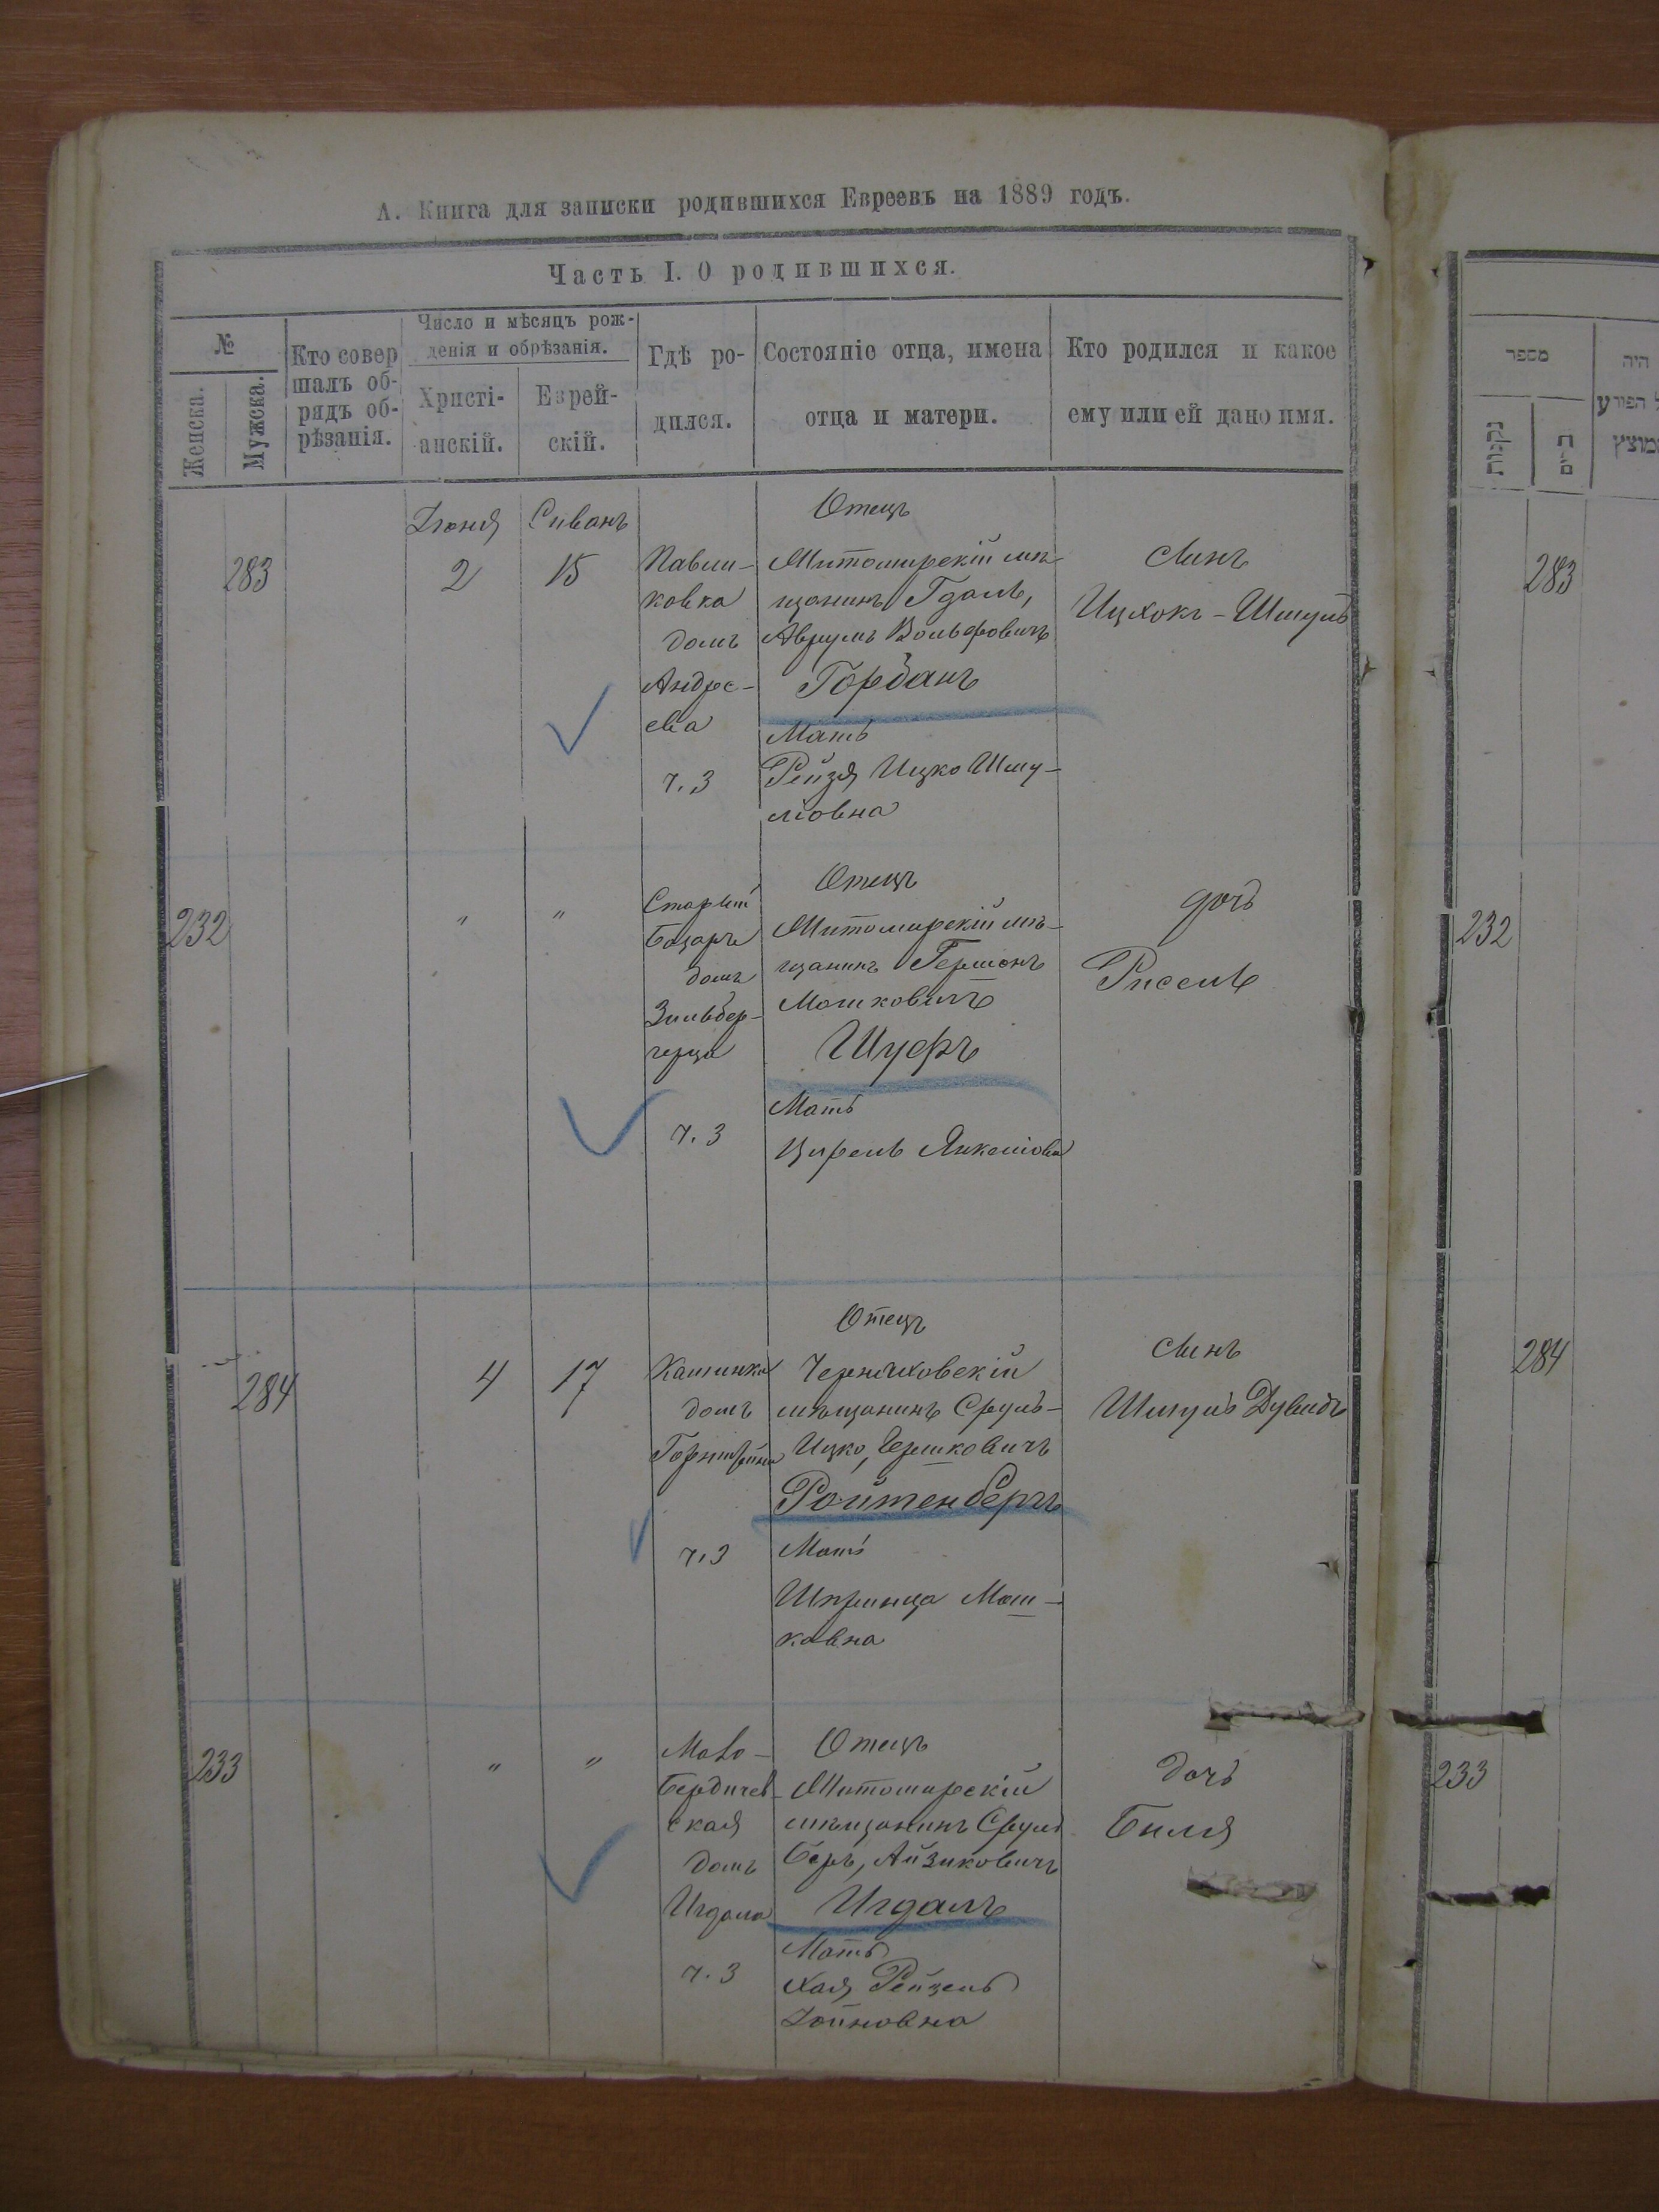 А. Книга для записки родившихся Евреевъ на 1889 годъ.
Часть I. О родившихся.
№
Женска.
Мужска.
Кто совер
шалъ об-
рядъ об-
рѣзанія.
Число и мѣсяцъ рож-
денія и обрѣзанія.
Христі-
анскій.
Еврей-
скій.
Гдѣ ро-
дился.
Состояніе отца, имена
отца и матери.
Кто родился и какое
ему или ей дано имя.
מספר
נקבות
זכרים
היה
הפורע
מוצץ
283
Іюня
2
Сиванъ
15
Павли-
ковка
домъ
Андре-
ева
ч. 3
Отецъ
Житомирскій мѣ-
щанинъ Гдаль,
Аврумъ Вольфовичъ
Горбань
Мать
Рейзя Ицко Шму-
ліовна
сынъ
Ицхокъ-Шмуль
283
232
"
"
Старый
базаръ
домъ
Зильбер-
ч. 3
Отецъ
Житомирскій мѣ-
щанинъ Гершонъ
Мошковичъ
Шуфъ
Мать
Цирель Янкеліовна
дочь
Рисель
232
284
4
17
домъ
ч. 3
Отецъ
Черняховскій
мѣщанинъ Сруль-
Ицко, Гершковичъ
Ройтенбергъ
Мать
Шпринца Мош-
ковна
сынъ
Шмуль Дувидъ
284
233
"
"
Мало-
бердичев-
ская
домъ
Игдала
ч. 3
Отецъ
Житомирскій
мѣщанинъ Сруль
Беръ, Айзиковичъ
Игдалъ
Мать
Хая Рейзель
Іойновна
дочь
Биля
233